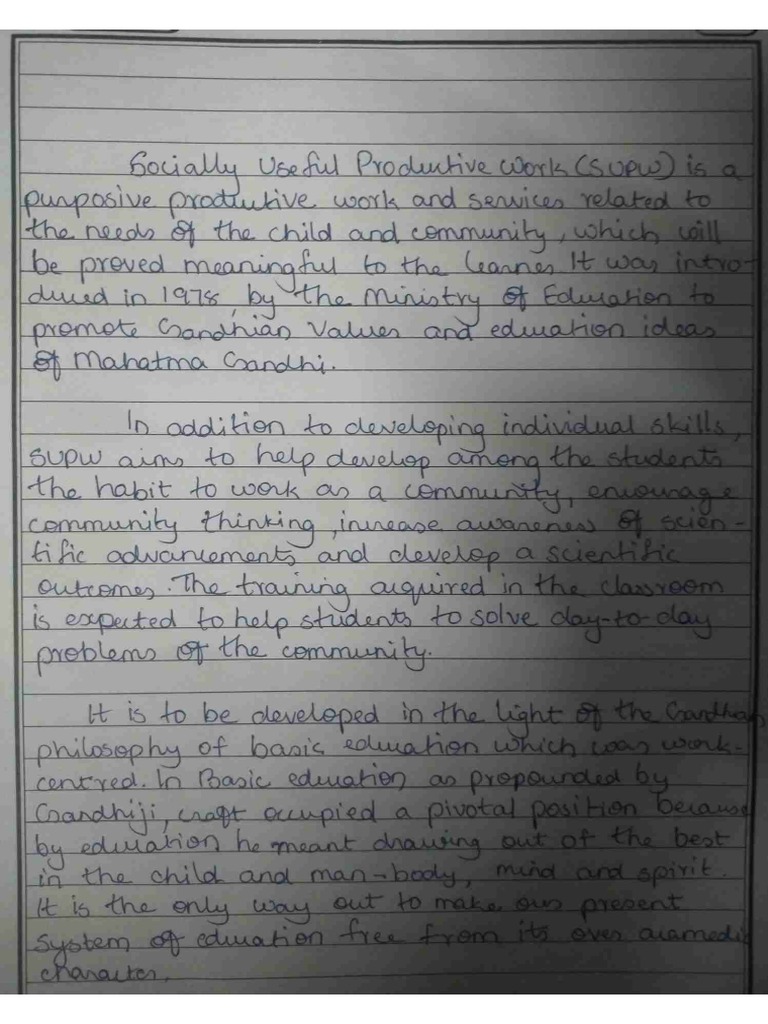 Socially Useful Productive Work (SUPW) is a
purposive productive work and services related to
the needs of the child and community, which will
be proved meaningful to the learner. It was intro-
duced in 1978, by the Ministry of Education to
promote Gandhian Values and education ideas
of Mahatma Gandhi.
In addition to developing individual skills,
SUPW aims to help develop among the students
the habit to work as a community, encourage
community thinking, increase awareness of scien-
tific advancements and develop a scientific
outcomes. The training acquired in the classroom
is expected to help students to solve day-to-day
problems of the community.
It is to be developed in the light of the Gandhian
philosophy of basic education which was work-
centred. In Basic education as propounded by
Gandhiji, craft occupied a pivotal position because
by education he meant drawing out of the best
in the child and man-body, mind and spirit.
It is the only way out to make our present
system of education free from its over acamedic
character.